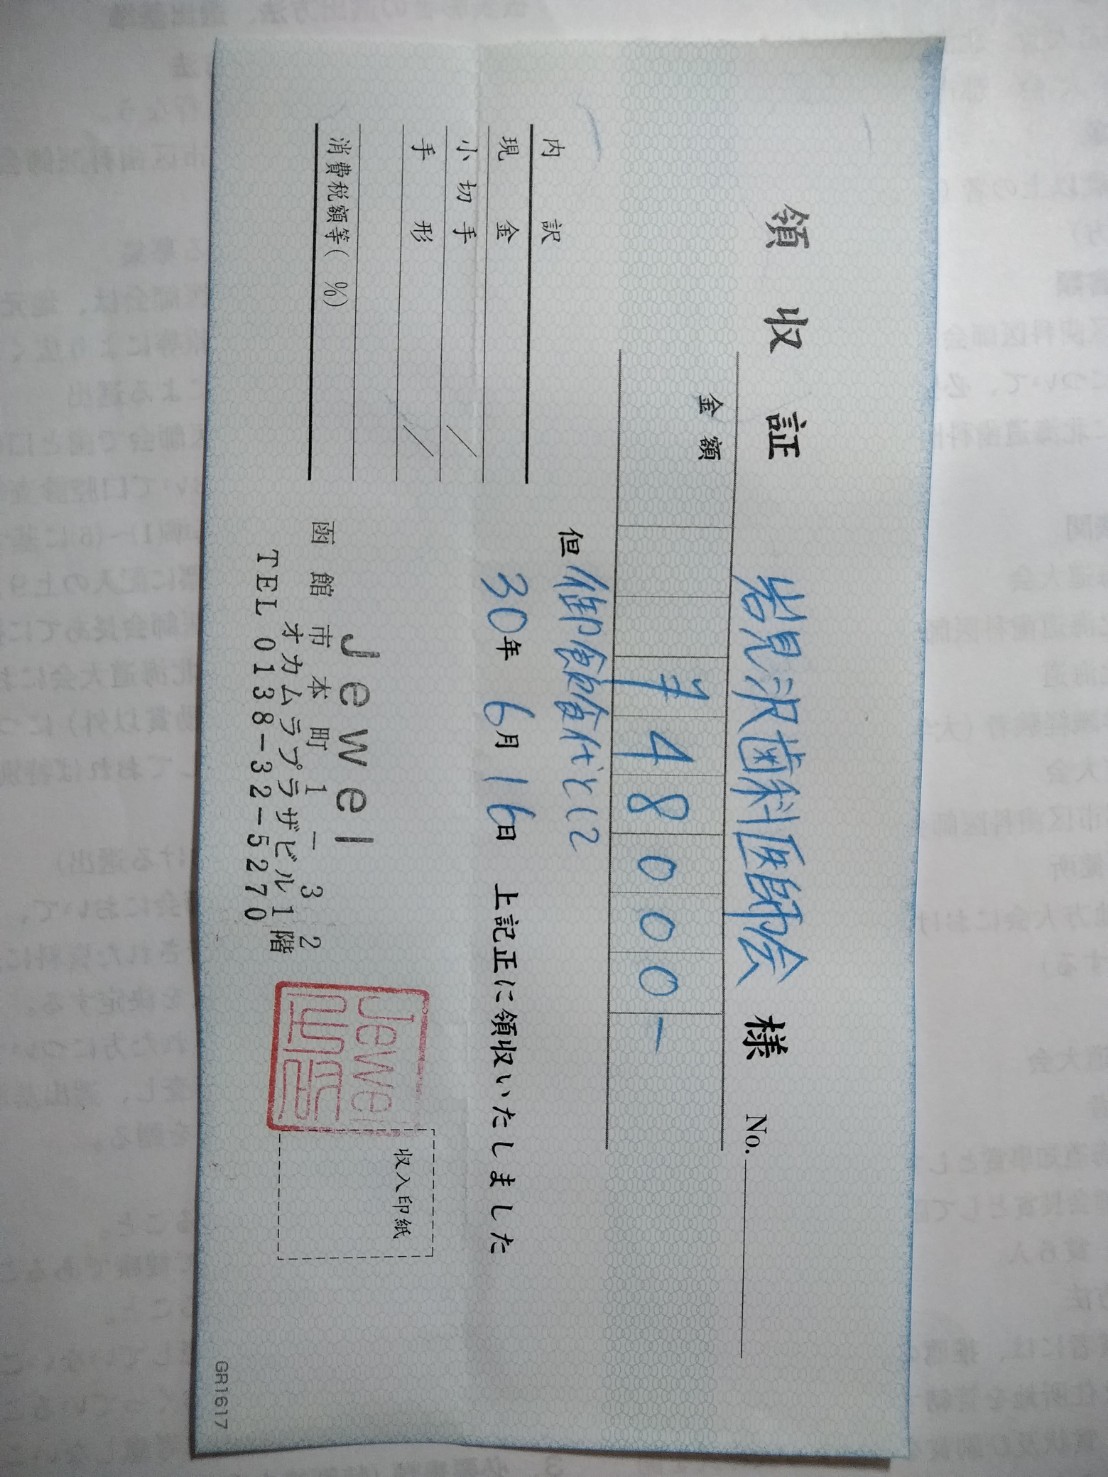 領収証
岩見沢歯科医師会 様 No.
金額 ¥48000-
但 御飲食代として
30年 6月 16日 上記正に領収いたしました
内訳
現金
小切手
手形
消費税額等( %)
Jewel
函館市本町1-32
オカムラプラザビル1階
TEL 0138-32-5270
Jewel
収入印紙
GR1617